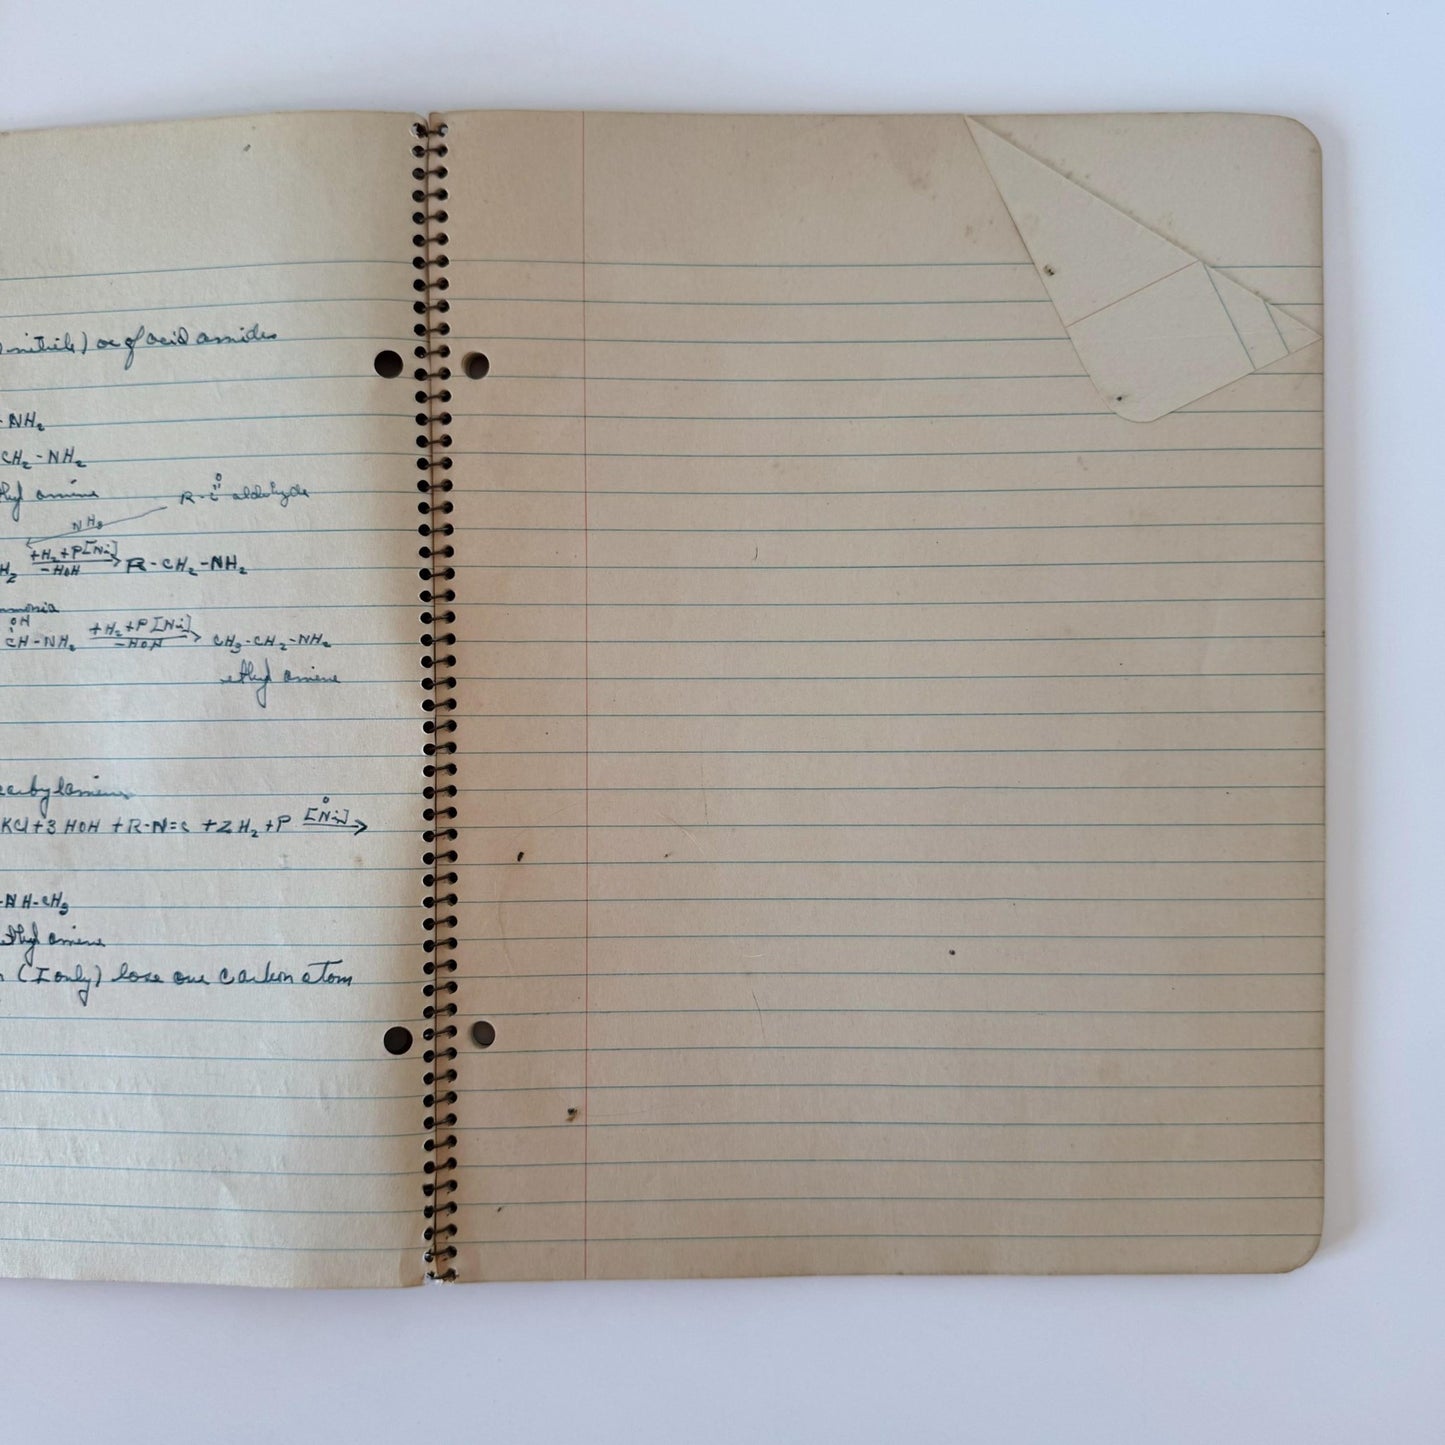 nitrile) or of acid amides
-NH₂
CH₂-NH₂
amine
R-C aldehyde
O
NH₃
H₂ +H₂+P[Ni] -HOH → R-CH₂-NH₂
OH
CH-NH₂ +H₂+P[Ni] -HOH → CH₃-CH₂-NH₂
ethyl amine
carbylamine
KCl+3 HOH +R-N=C +2H₂+P [Ni] →
-NH-CH₃
amine
(I only) lose one carbon atom